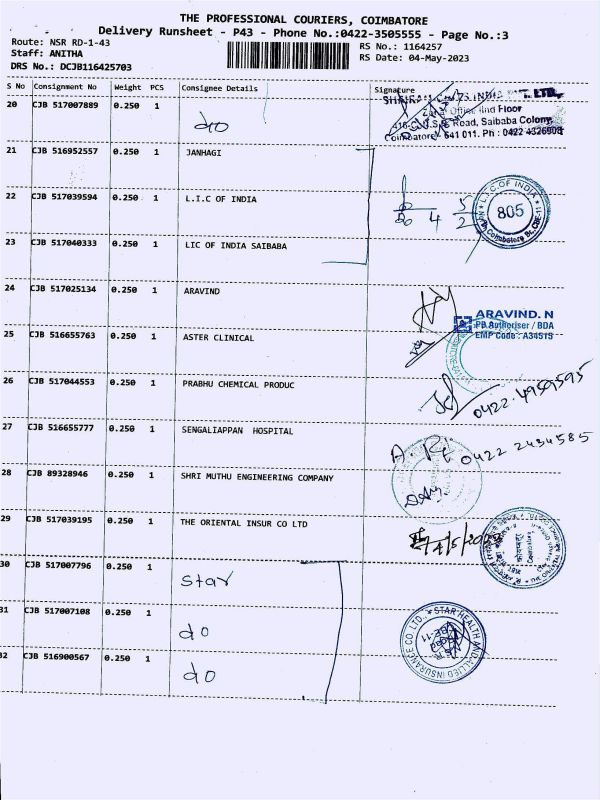 THE PROFESSIONAL COURIERS, COIMBATORE
Delivery Runsheet - P43 - Phone No.:0422-3505555 - Page No.:3
Route: NSR RD-1-43 RS No.: 1164257
Staff: ANITHA RS Date: 04-May-2023
DRS No.: DCJB116425703
S No Consignment No Weight PCS Consignee Details Signature
20 CJB 517007889 0.250 1 do
Road, Saibaba Colony,
641 011. Ph : 0422 4326908
21 CJB 516952557 0.250 1 JANHAGI
22 CJB 517039594 0.250 1 L.I.C OF INDIA
L.I.C OF INDIA
805
23 CJB 517040333 0.250 1 LIC OF INDIA SAIBABA
24 CJB 517025134 0.250 1 ARAVIND
ARAVIND. N
PB Authoriser / BDA
EMP Code : A34515
25 CJB 516655763 0.250 1 ASTER CLINICAL
26 CJB 517044553 0.250 1 PRABHU CHEMICAL PRODUC
0422.4959595
27 CJB 516655777 0.250 1 SENGALIAPPAN HOSPITAL
0422 2434585
28 CJB 89328946 0.250 1 SHRI MUTHU ENGINEERING COMPANY
29 CJB 517039195 0.250 1 THE ORIENTAL INSUR CO LTD
30 CJB 517007796 0.250 1 star
31 CJB 517007108 0.250 1 do
STAR HEALTH AND ALLIED INSURANCE CO. LTD.,
32 CJB 516900567 0.250 1 do